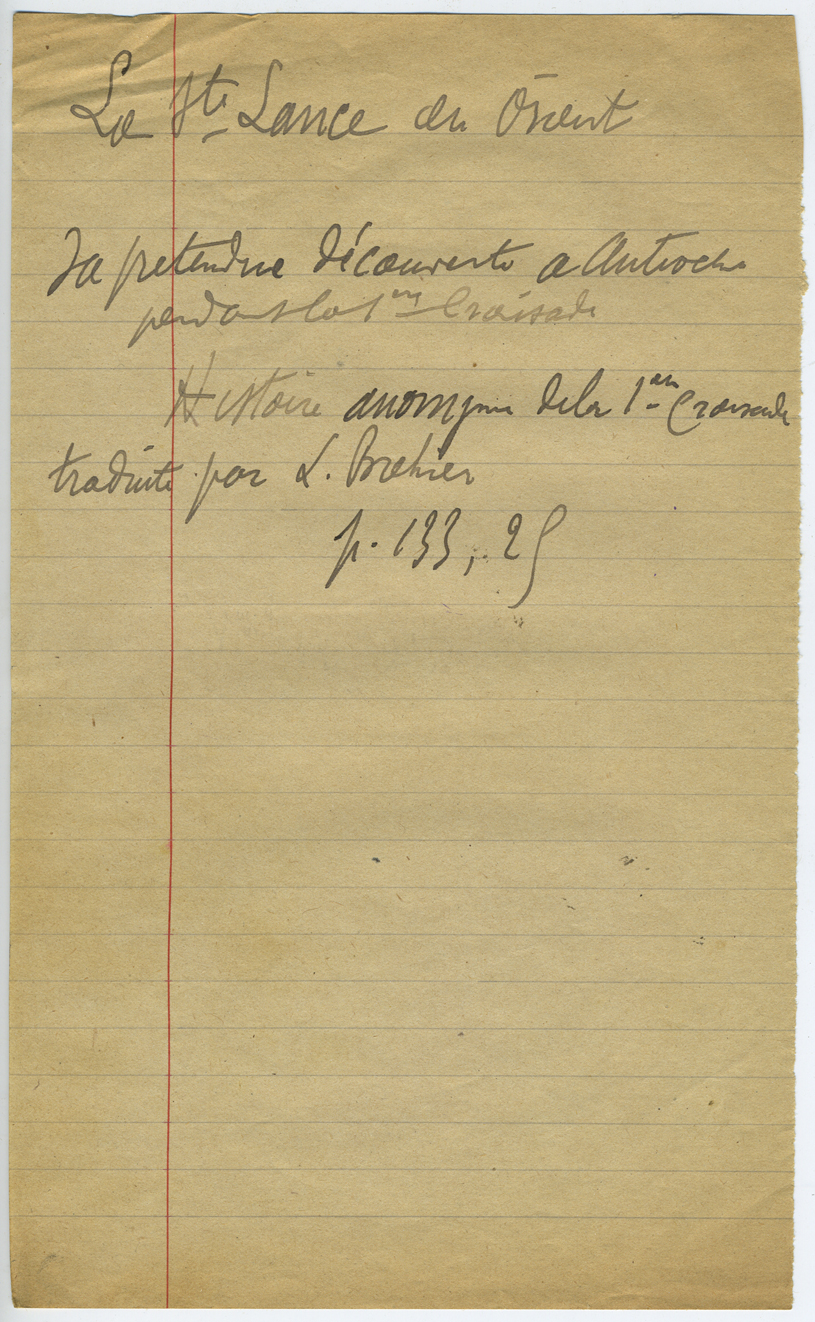 La Ste Lance en Orient
Sa pretendue découverte a Antioche
pendant la 1ère Croisade
Histoire anonyme de la 1ère Croisade
traduite par L. Brehier
p. 133, 25